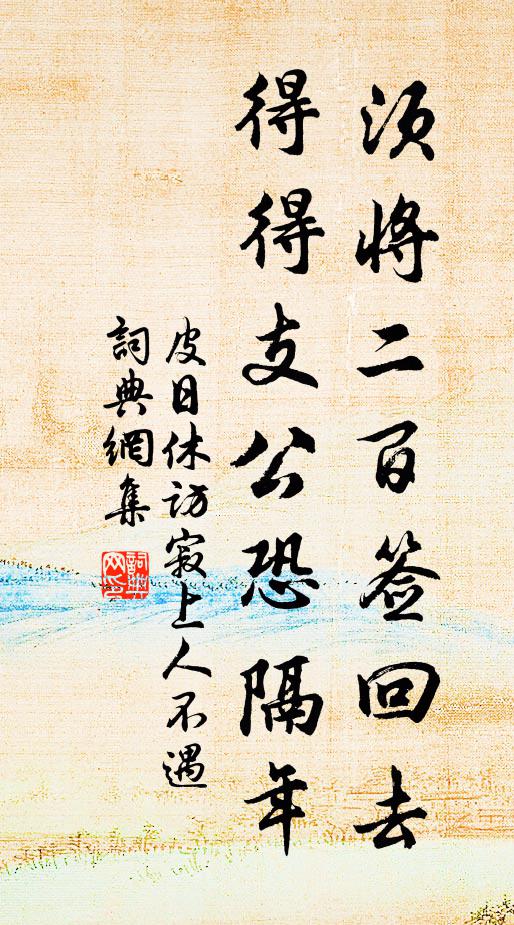 須將二百签回去
得得支公恐隔年
皮日休訪寂上人不遇
詞典網集